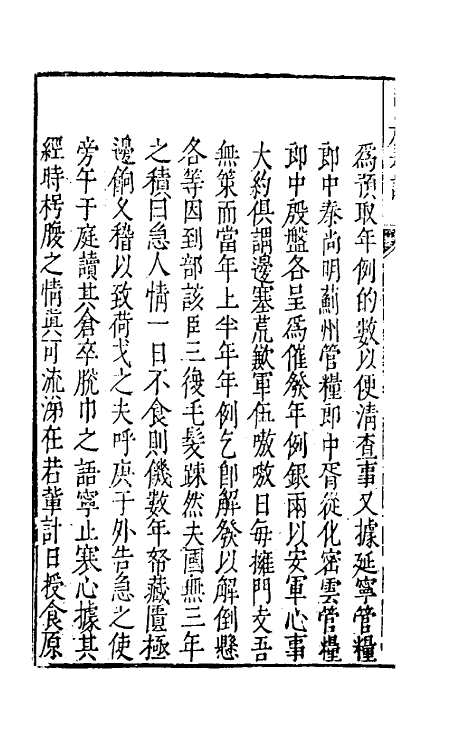 爲預取年例的數以便清查事又據延寧管糧
郎中秦尚明薊州管糧郎中胥從化密雲管糧
郎中殷盤各呈爲催發年例銀兩以安軍心事
大約俱謂邊塞荒歉軍伍嗷嗷日每擁門支吾
無策而當年上半年年例乞即解發以解倒懸
各等因到部該臣三復毛髮踈然夫國無三年
之積曰急人情一日不食則饑數年帑藏匱極
邊餉又稽以致荷戈之夫呼庚于外告急之使
旁午于庭讀其倉卒脫巾之語寧止寒心據其
經時枵腹之情真可流涕在若軰計日授食原